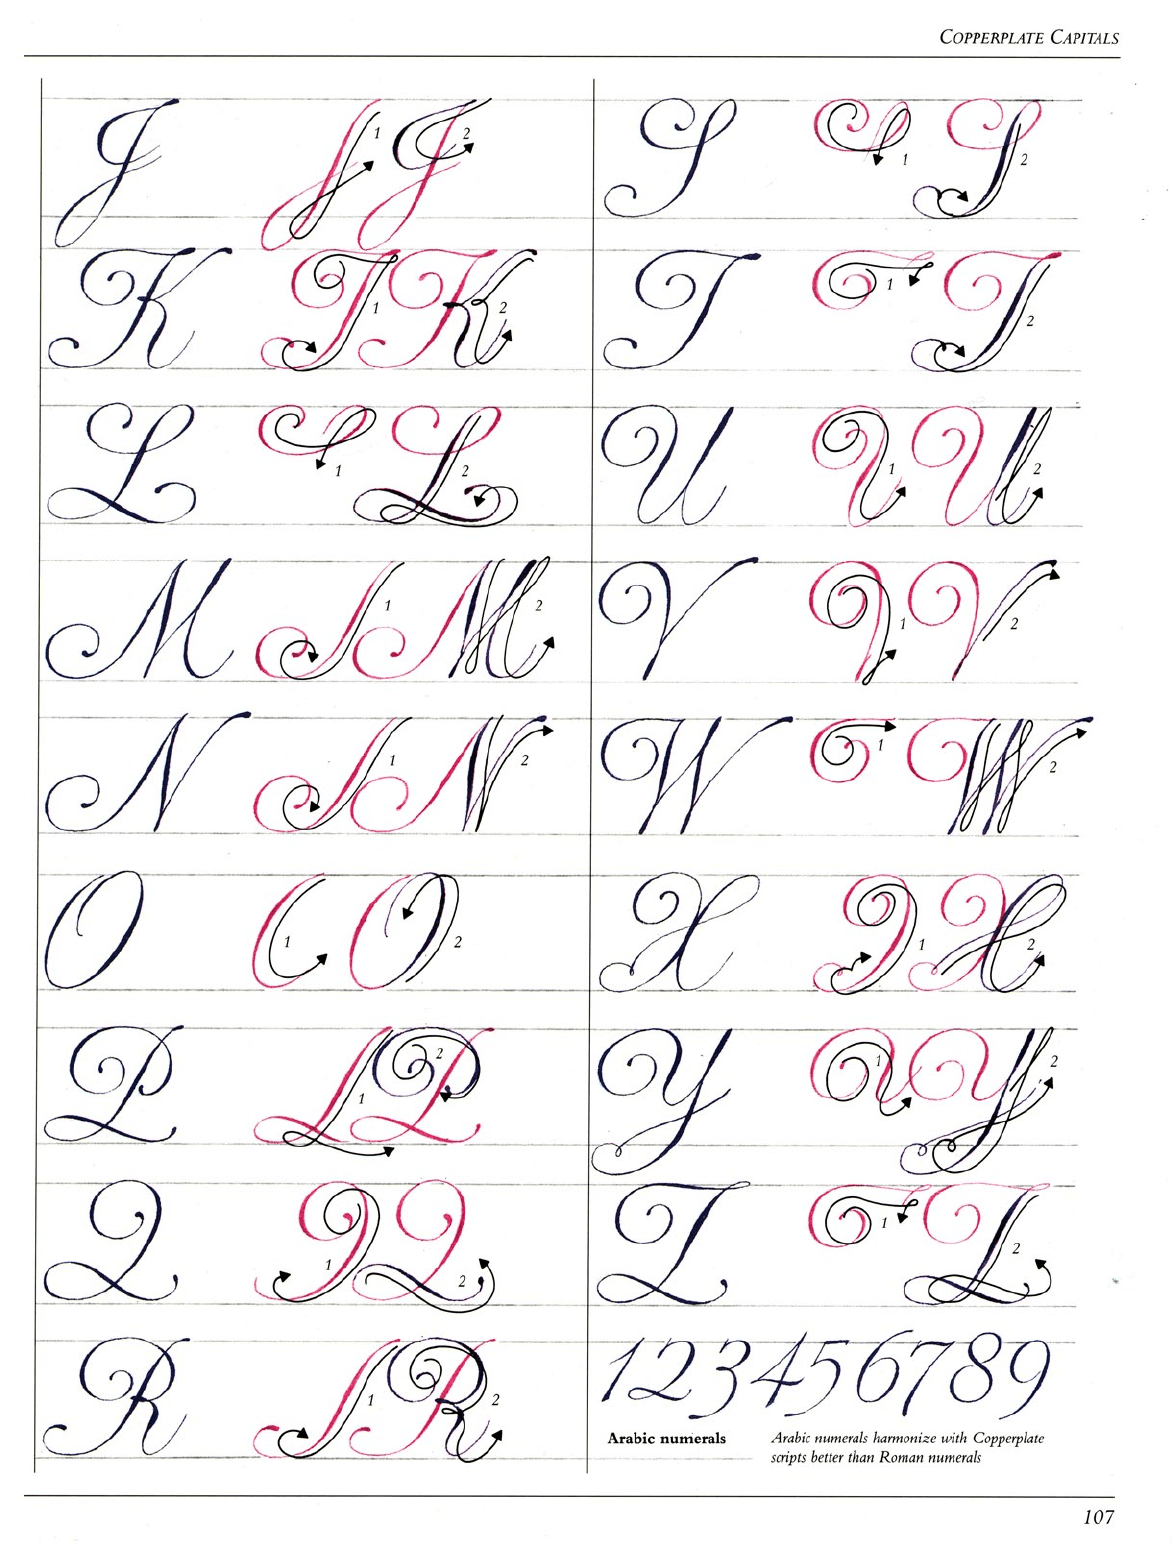 COPPERPLATE CAPITALS
J 1 J 2 J
K 1 K 2
L 1 L 2
M 1 M 2
N 1 N 2
O 1 O 2
P 1 P 2
Q 1 Q 2
R 1 R 2
S 1 S 2
T 1 T 2
U 1 U 2
V 1 V 2
W 1 W 2
X 1 X 2
Y 1 Y 2
Z 1 Z 2
123456789
Arabic numerals
Arabic numerals harmonize with Copperplate
scripts better than Roman numerals
107